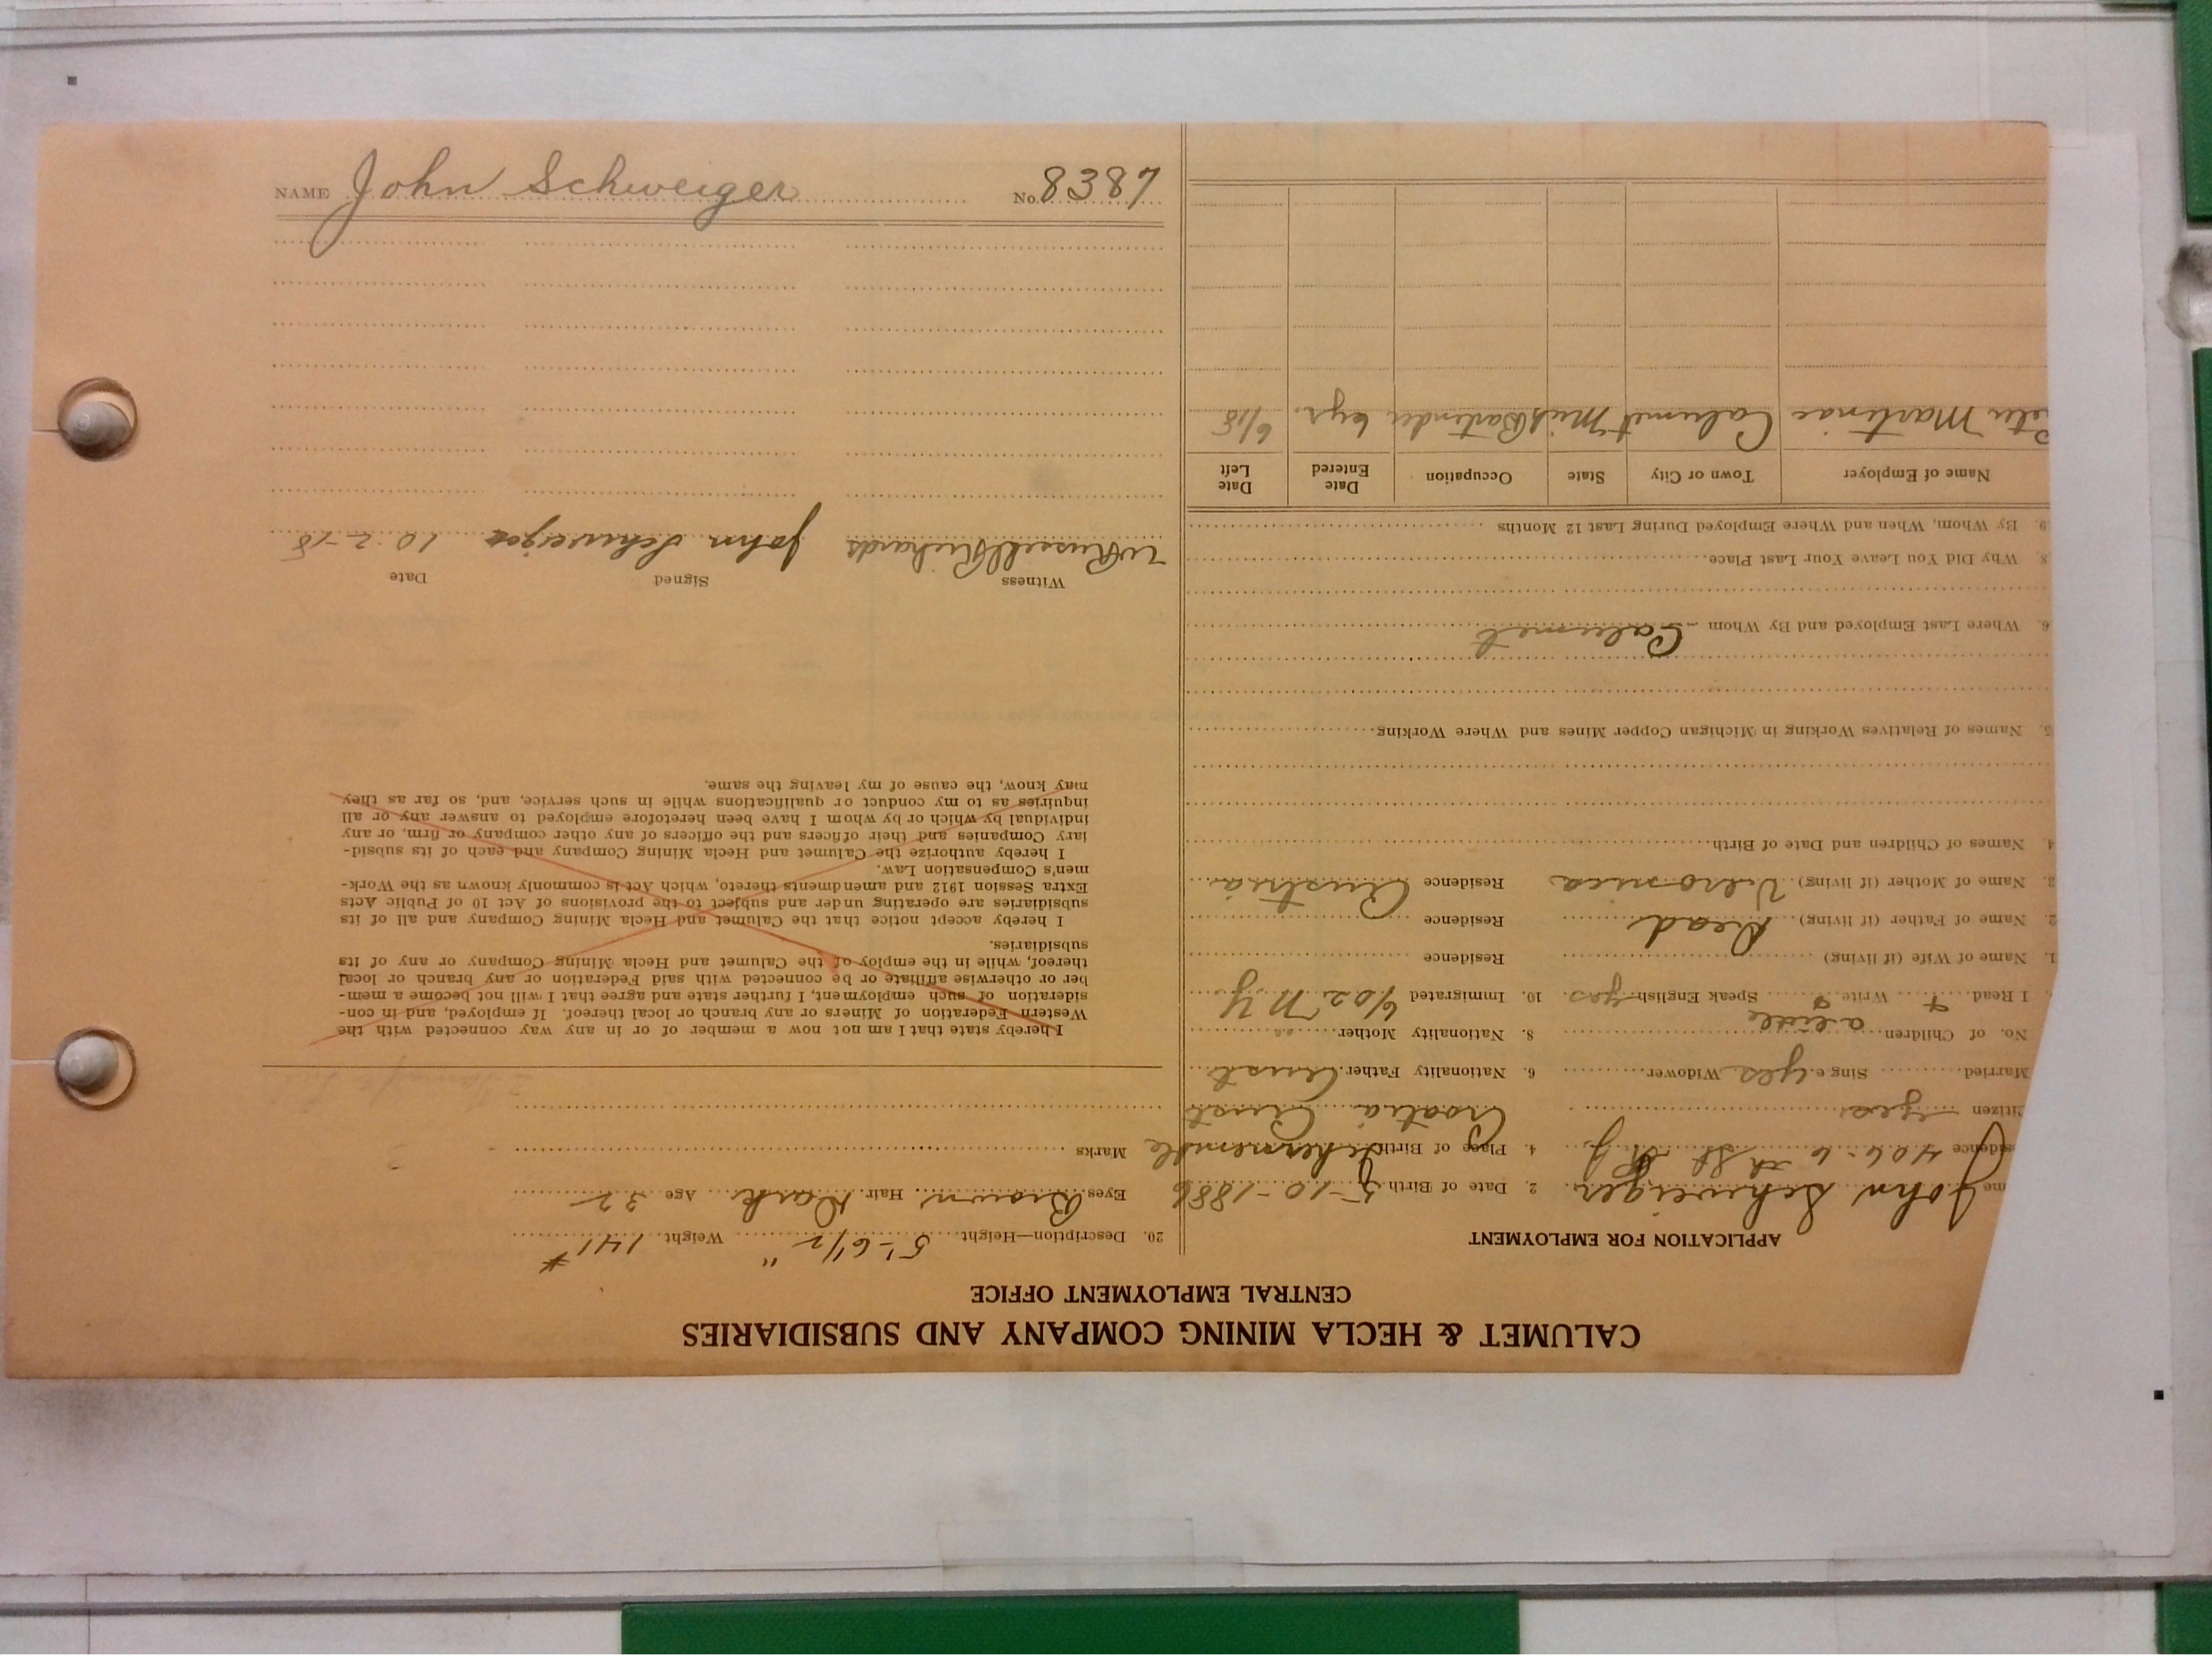 NAME John Schweiger No. 8387
CALUMET & HECLA MINING COMPANY AND SUBSIDIARIES
CENTRAL EMPLOYMENT OFFICE
APPLICATION FOR EMPLOYMENT
me John Schweiger 2. Date of Birth 5-10-1886
sidence 406-6th St 4. Place of Birth
itizen yes Croatia Aust
Married Single yes Widower 6. Nationality Father Aust
No. of Children 8. Nationality Mother "
a little
I Read Write Speak English yes 10. Immigrated 6/02 N.Y.
1. Name of Wife (if living) Residence
2. Name of Father (if living) Dead Residence
3. Name of Mother (if living) Veronica Residence Austria
4. Names of Children and Date of Birth
5. Names of Relatives Working in Michigan Copper Mines and Where Working
6. Where Last Employed and By Whom Calumet
8. Why Did You Leave Your Last Place
9. By Whom, When and Where Employed During Last 12 Months
Name of Employer Town or City State Occupation Date Entered Date Left
Peter Martinac Calumet Mich Bartender 6 yrs. 6/18
20. Description—Height 5'-6 1/2" Weight 141 #
Eyes Brown Hair Dark Age 32
Marks
I hereby state that I am not now a member of or in any way connected with the
Western Federation of Miners or any branch or local thereof. If employed, and in con-
sideration of such employment, I further state and agree that I will not become a mem-
ber or otherwise affiliate or be connected with said Federation or any branch or local
thereof, while in the employ of the Calumet and Hecla Mining Company or any of its
subsidiaries.
I hereby accept notice that the Calumet and Hecla Mining Company and all of its
subsidiaries are operating under and subject to the provisions of Act 10 of Public Acts
Extra Session 1912 and amendments thereto, which Act is commonly known as the Work-
men's Compensation Law.
I hereby authorize the Calumet and Hecla Mining Company and each of its subsid-
iary Companies and their officers and the officers of any other company or firm, or any
individual by which or by whom I have been heretofore employed to answer any or all
inquiries as to my conduct or qualifications while in such service, and, so far as they
may know, the cause of my leaving the same.
Witness Signed Date
W Russell Richards John Schweiger 10-2-18